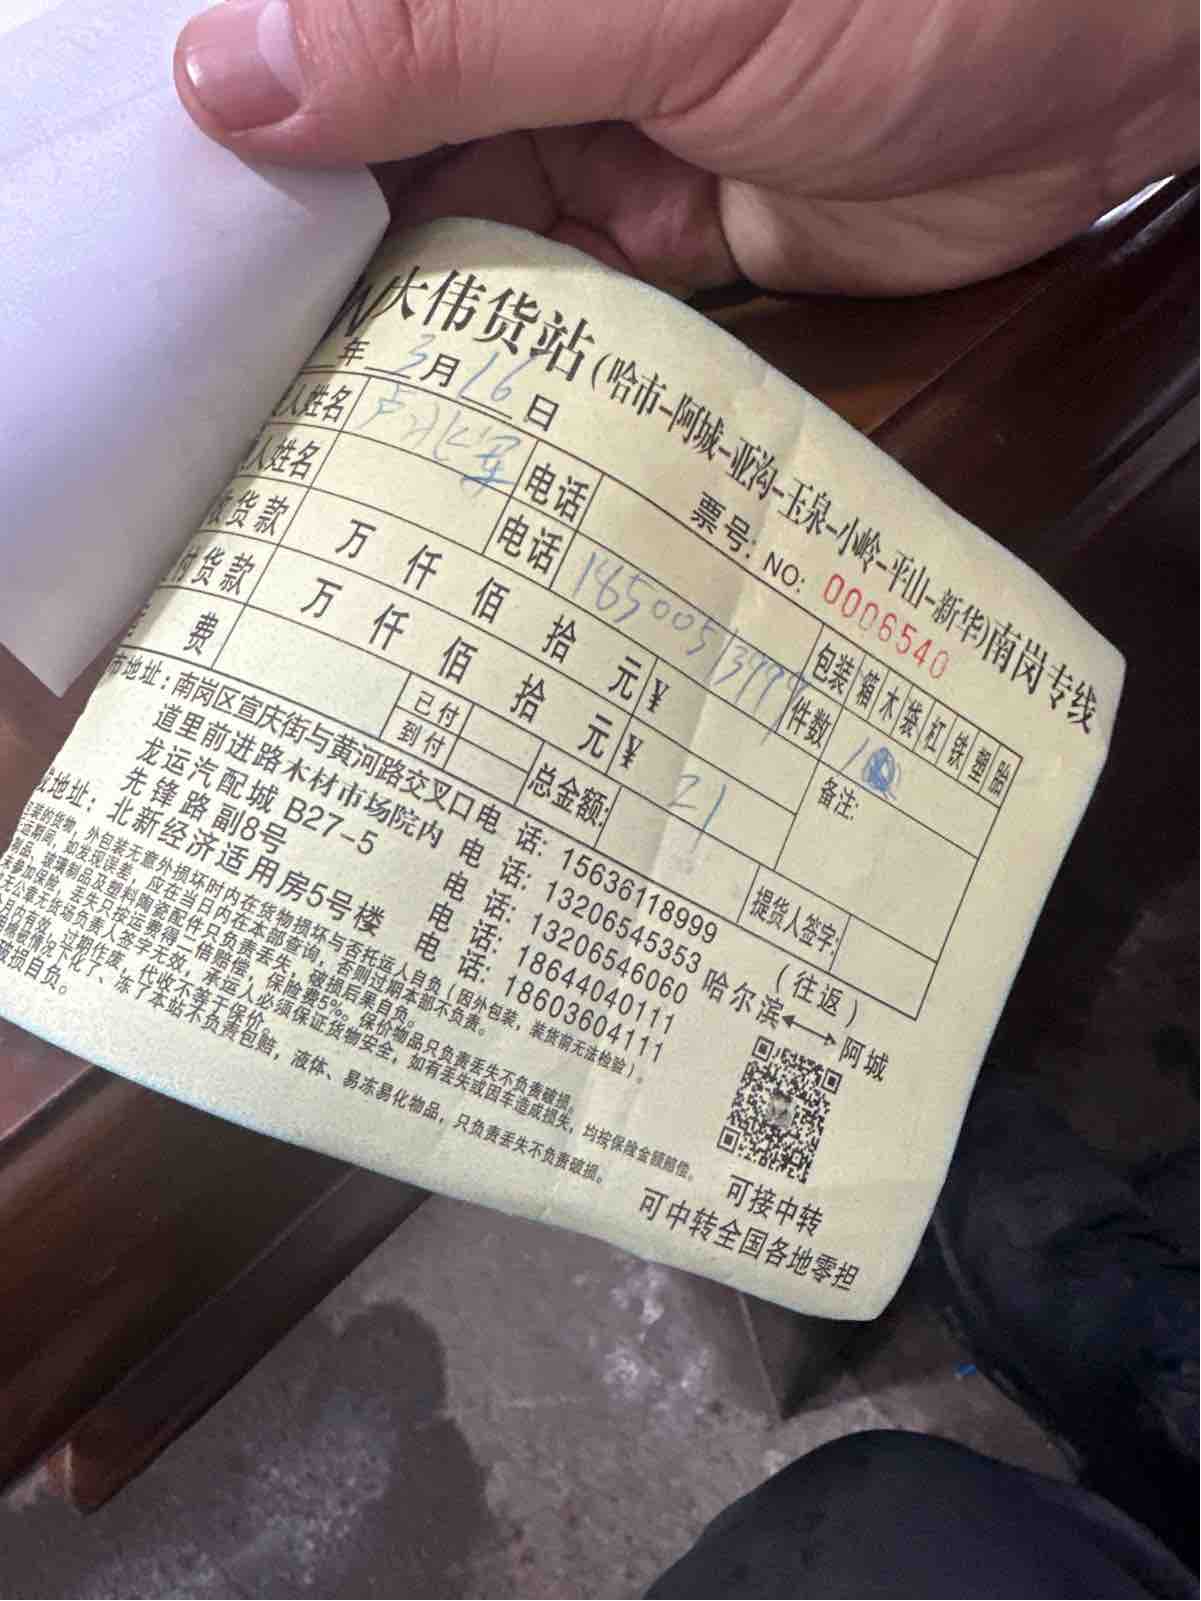 大伟货站(哈市-阿城-亚沟-玉泉-小岭-平山-新华)南岗专线
年 3月16日 票号: NO: 0006540
人姓名 电话 包装 箱 木 袋 杠 铁 塑 胎
人姓名 电话 18500513999 件数 1
收货款 万 仟 佰 拾 元 ¥ 备注:
付货款 万 仟 佰 拾 元 ¥ 21
费 已付 到付 总金额: 提货人签字:
市地址: 南岗区宣庆街与黄河路交叉口 电 话: 15636118999 (往返)
道里前进路木材市场院内 电 话: 13206545353 哈尔滨⟷阿城
龙运汽配城 B27-5 电 话: 13206546060
先锋路副8号 电 话: 18644040111
地址: 北新经济适用房5号楼 电 话: 18603604111
装的货物,外包装无意外损坏时内在货物损坏与否托运人自负(因外包装,装货前无法检验)。
运期间,如发现误差,应在当日内在本部查询,否则过期本部不负责。
制品、玻璃制品及塑料陶瓷配件只负责丢失,破损后果自负。
未参加保险,丢失只按运费得一倍赔偿,保险费5‰。保价物品只负责丢失不负责破损。
无公章无货场负责人签字无效,承运人必须保证货物安全,如有丢失或因车造成损失,均按保险金额赔偿。
仍有效,过期作废,代收不等于保价。
情况下化了、冻了本站不负责包赔,液体、易冻易化物品,只负责丢失不负责破损。
破损自负。
可接中转
可中转全国各地零担